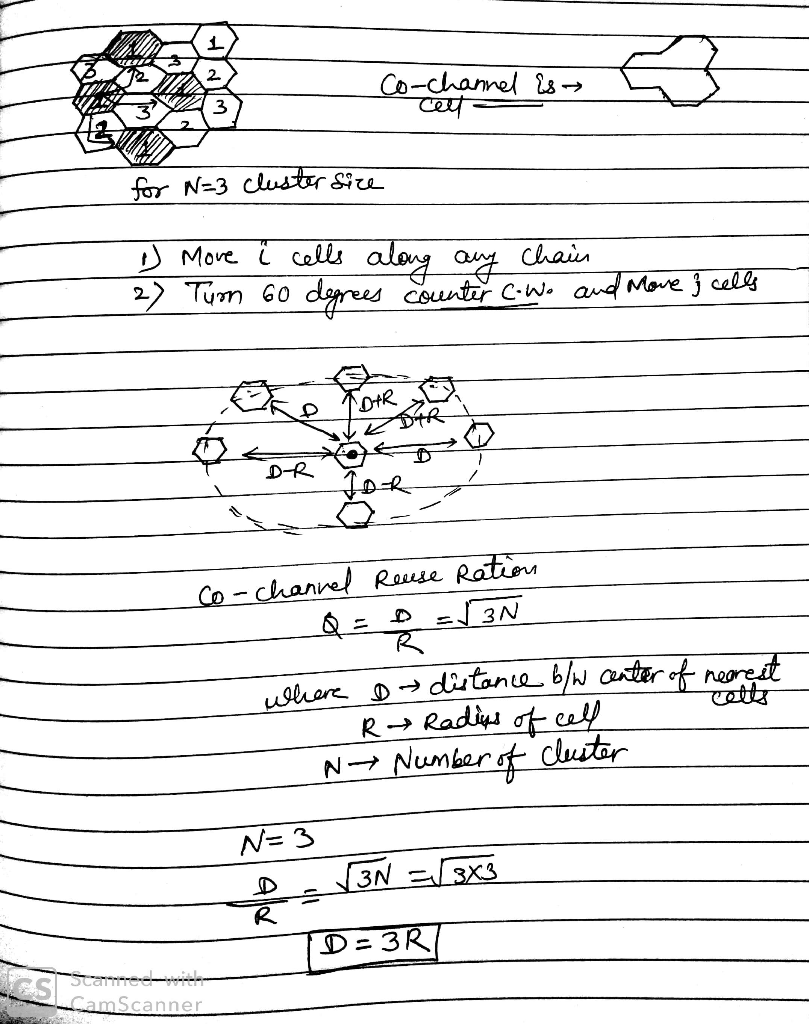 1
3 1
3 2 2
1 1
3 3
2 2
1
Co-channel is →
cell
for N=3 cluster size
1) Move i cells along any chain
2) Turn 60 degrees counter C.W. and Move j cells
D D+R D+R
D-R D
D-R
Co-channel Reuse Ration
Q = D/R = √3N
where D → distance b/w center of nearest
cells
R → Radius of cell
N → Number of cluster
N=3
D/R = √3N = √3X3
D = 3R
CS Scanned with
CamScanner